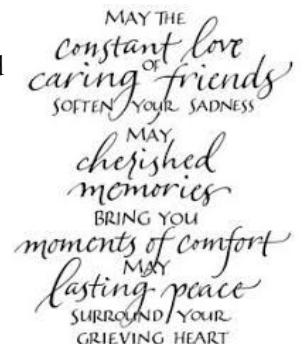 MAY THE
constant love
OF
caring friends
SOFTEN YOUR SADNESS
MAY
cherished
memories
BRING YOU
moments of comfort
MAY
lasting peace
SURROUND YOUR
GRIEVING HEART